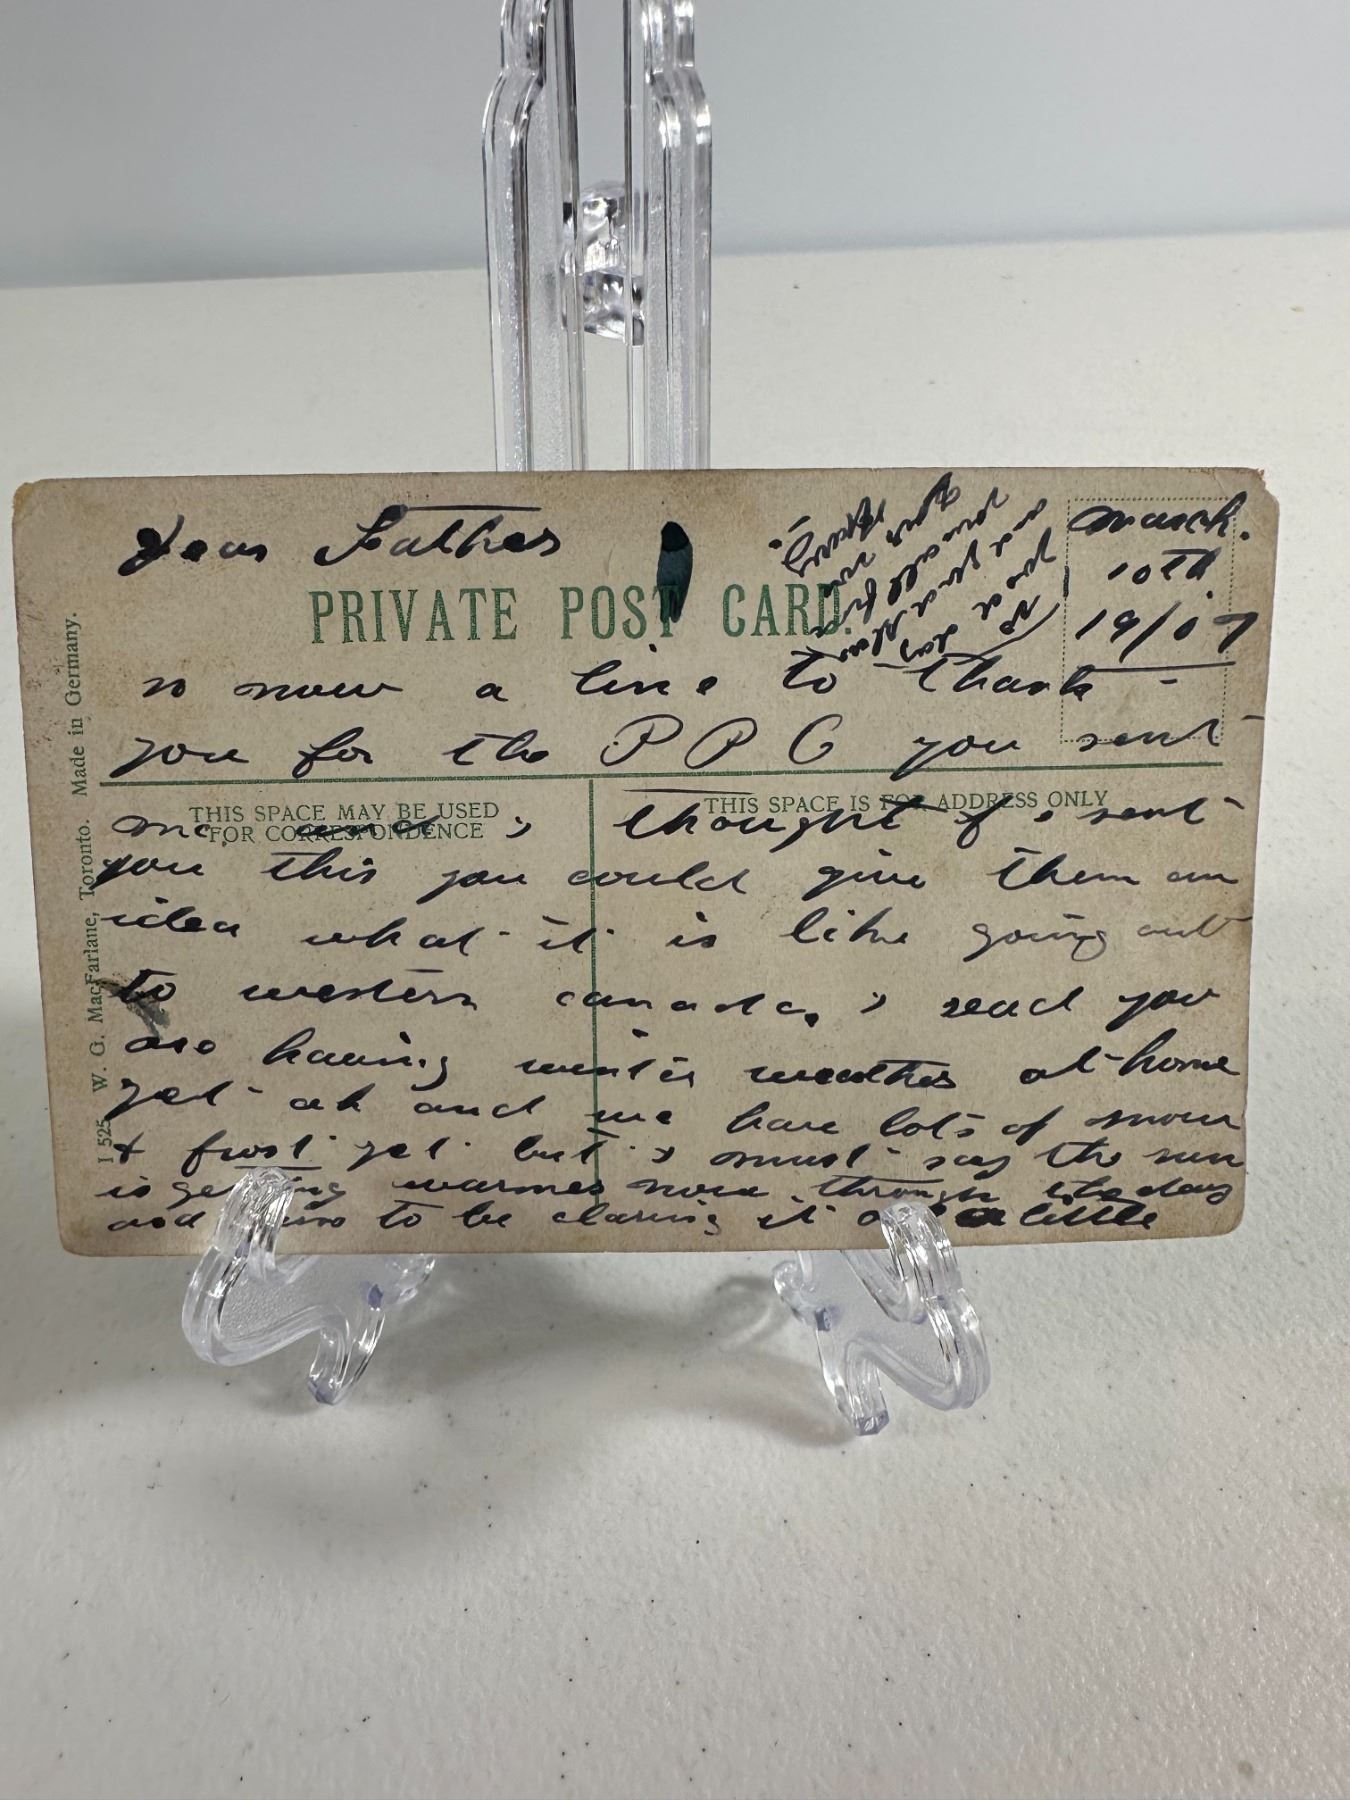 March.
10th
19/07
Dear Father
PRIVATE POST CARD.
n now a line to thank
you for the P P C you sent
THIS SPACE MAY BE USED
FOR CORRESPONDENCE
THIS SPACE IS FOR ADDRESS ONLY
me, and i thought if i sent
you this you could give them an
idea what it is like going out
to western canada, i read you
are having winter weather at home
yet ah and we have lots of snow
& frost yet but i must say the sun
is getting warmer now through the day
and to be claring it a little
you all from
your
I 525 W. G. MacFarlane, Toronto. Made in Germany.